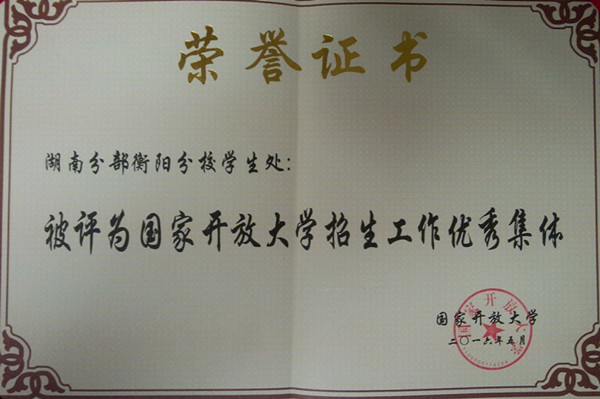 荣誉证书
湖南分部衡阳分校学生处:
被评为国家开放大学招生工作优秀集体
国家开放大学
二〇一六年五月
国家开放大学